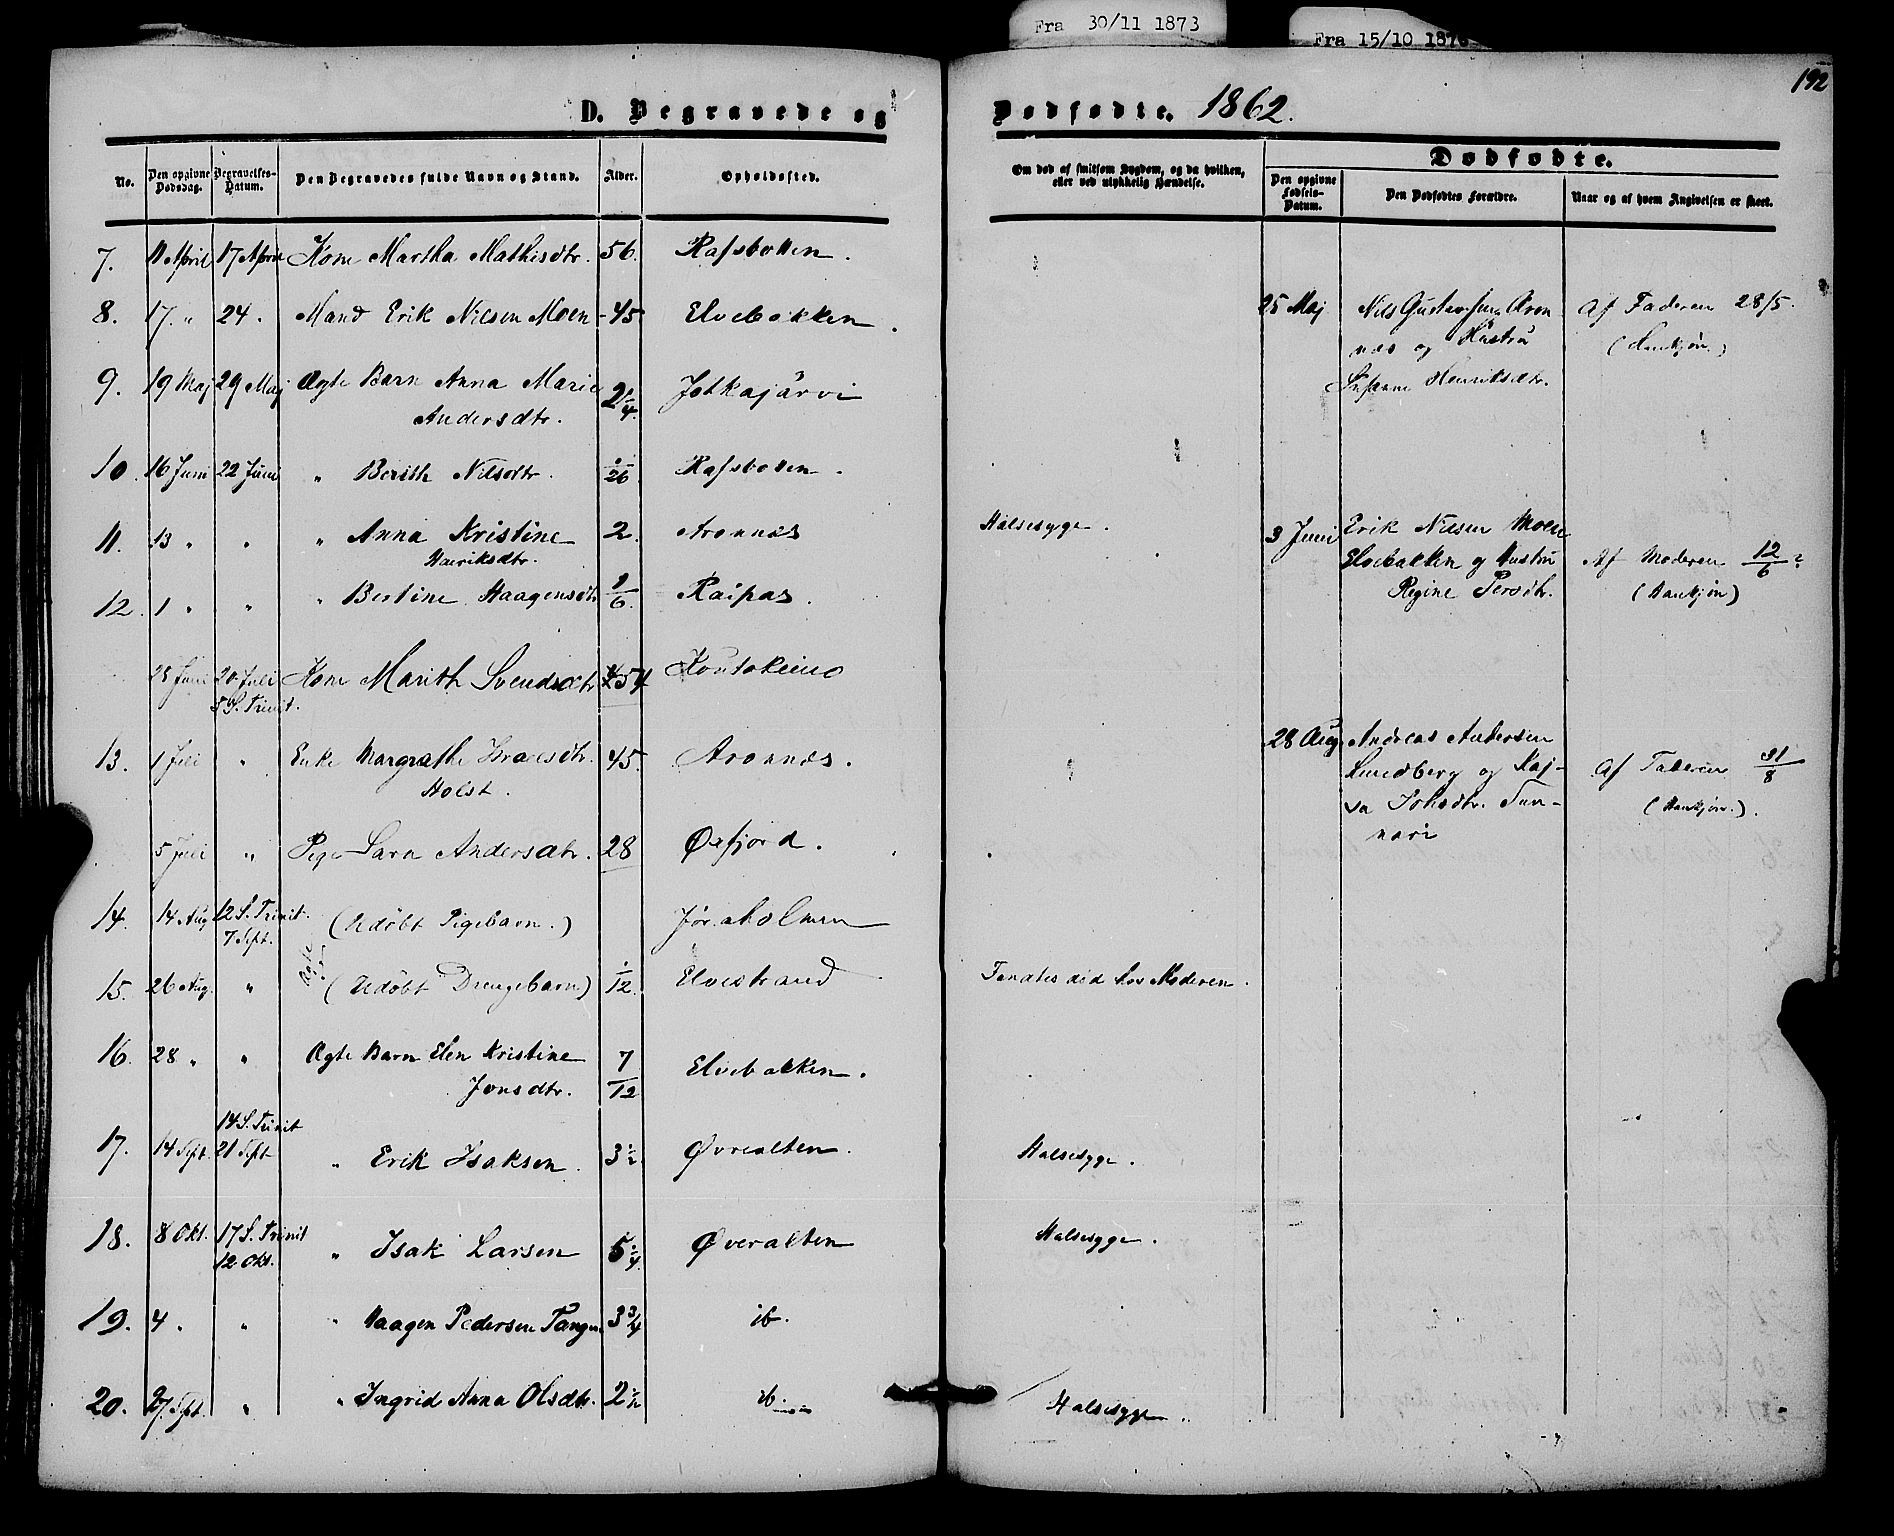 Fra 30/11 1873
Fra 15/10 187
192
D. Begravede og Dødfødte. 1862.
No.
Den opgivne Dødsdag.
Begravelses-Datum.
Den Begravedes fulde Navn og Stand.
Alder.
Opholdssted.
Om død af smitsom Sygdom, og da hvilken, eller ved ulykkelig Hændelse.
Dødfødte.
Den opgivne Fødsels-Datum.
Den Dødfødtes Forældre.
Naar og af hvem Angivelsen er skeet.
7. 11 April 17 April Kone Martha Mathisdtr. 56. Rafsbotten.
8. 17. " 24. Mand Erik Nilsen Moen - 45 Elvebakken.
25 Maj Nils Gustav Aron
næs og Hustru
Susanne Henriksdtr.
Af Faderen 28/5.
(Hankjøn.)
9. 19 Maj 29 Maj Ægte Barn Anna Marie 2 1/4. Jotkajärvi
Andersdtr.
10. 16 Juni 22 Juni " Berith Nilsdtr. 1/26 Rafsboten.
11. 13 " " " Anna Kristine 2. Aronnæs Halsesyge.
Henriksdtr.
3 Juni Erik Nilsen Moen
Elvebakken og Hustru
Regine Persdtr.
Af Moderen 12/6
(Hankjøn)
12. 1 " " " Bertine Haagensdtr 1/6. Raipas.
28 Juni 20 Juli Kone Marith Svendsdtr 54 Koutokeino
5 S. Trinit.
13. 1 Juli " Enke Margrathe Israelsdtr. 45. Aronnæs.
Holst.
28 Aug. Andreas Andersen
Lundberg og Kaj-
sa Johsdtr. Tun-
nari
Af Faderen 31/8
(Hankjøn.).
5 Juli " Pige Sara Andersdtr. 28 Øxfjord.
14. 14 Aug 12 S. Trinit. (Udøbt Pigebarn.) Jøraholmen
7 Sept.
Ægte
15. 26 Aug. " (Udøbt Drengebarn) 1/12. Elvestrand Fandtes død hos Moderen.
16. 28 " " Ægte Barn Elen Kristine 7/12 Elvebakken.
Jonsdtr.
14 S. Trinit
17. 14 Sept. 21 Sept " Erik Isaksen. 3 1/2. Øvrealten. Halsesyge.
18. 8 Okt. 17 S. Trinit " Isak Larsen 5 1/4. Øveralten Halsesyge.
12. Okt.
19. 4 " " " Haagen Pedersen Tangen 3 3/4 ib.
20. 27. Sept. " " Ingrid Anna Olsdtr. 2 1/2 ib. Halsesyge.